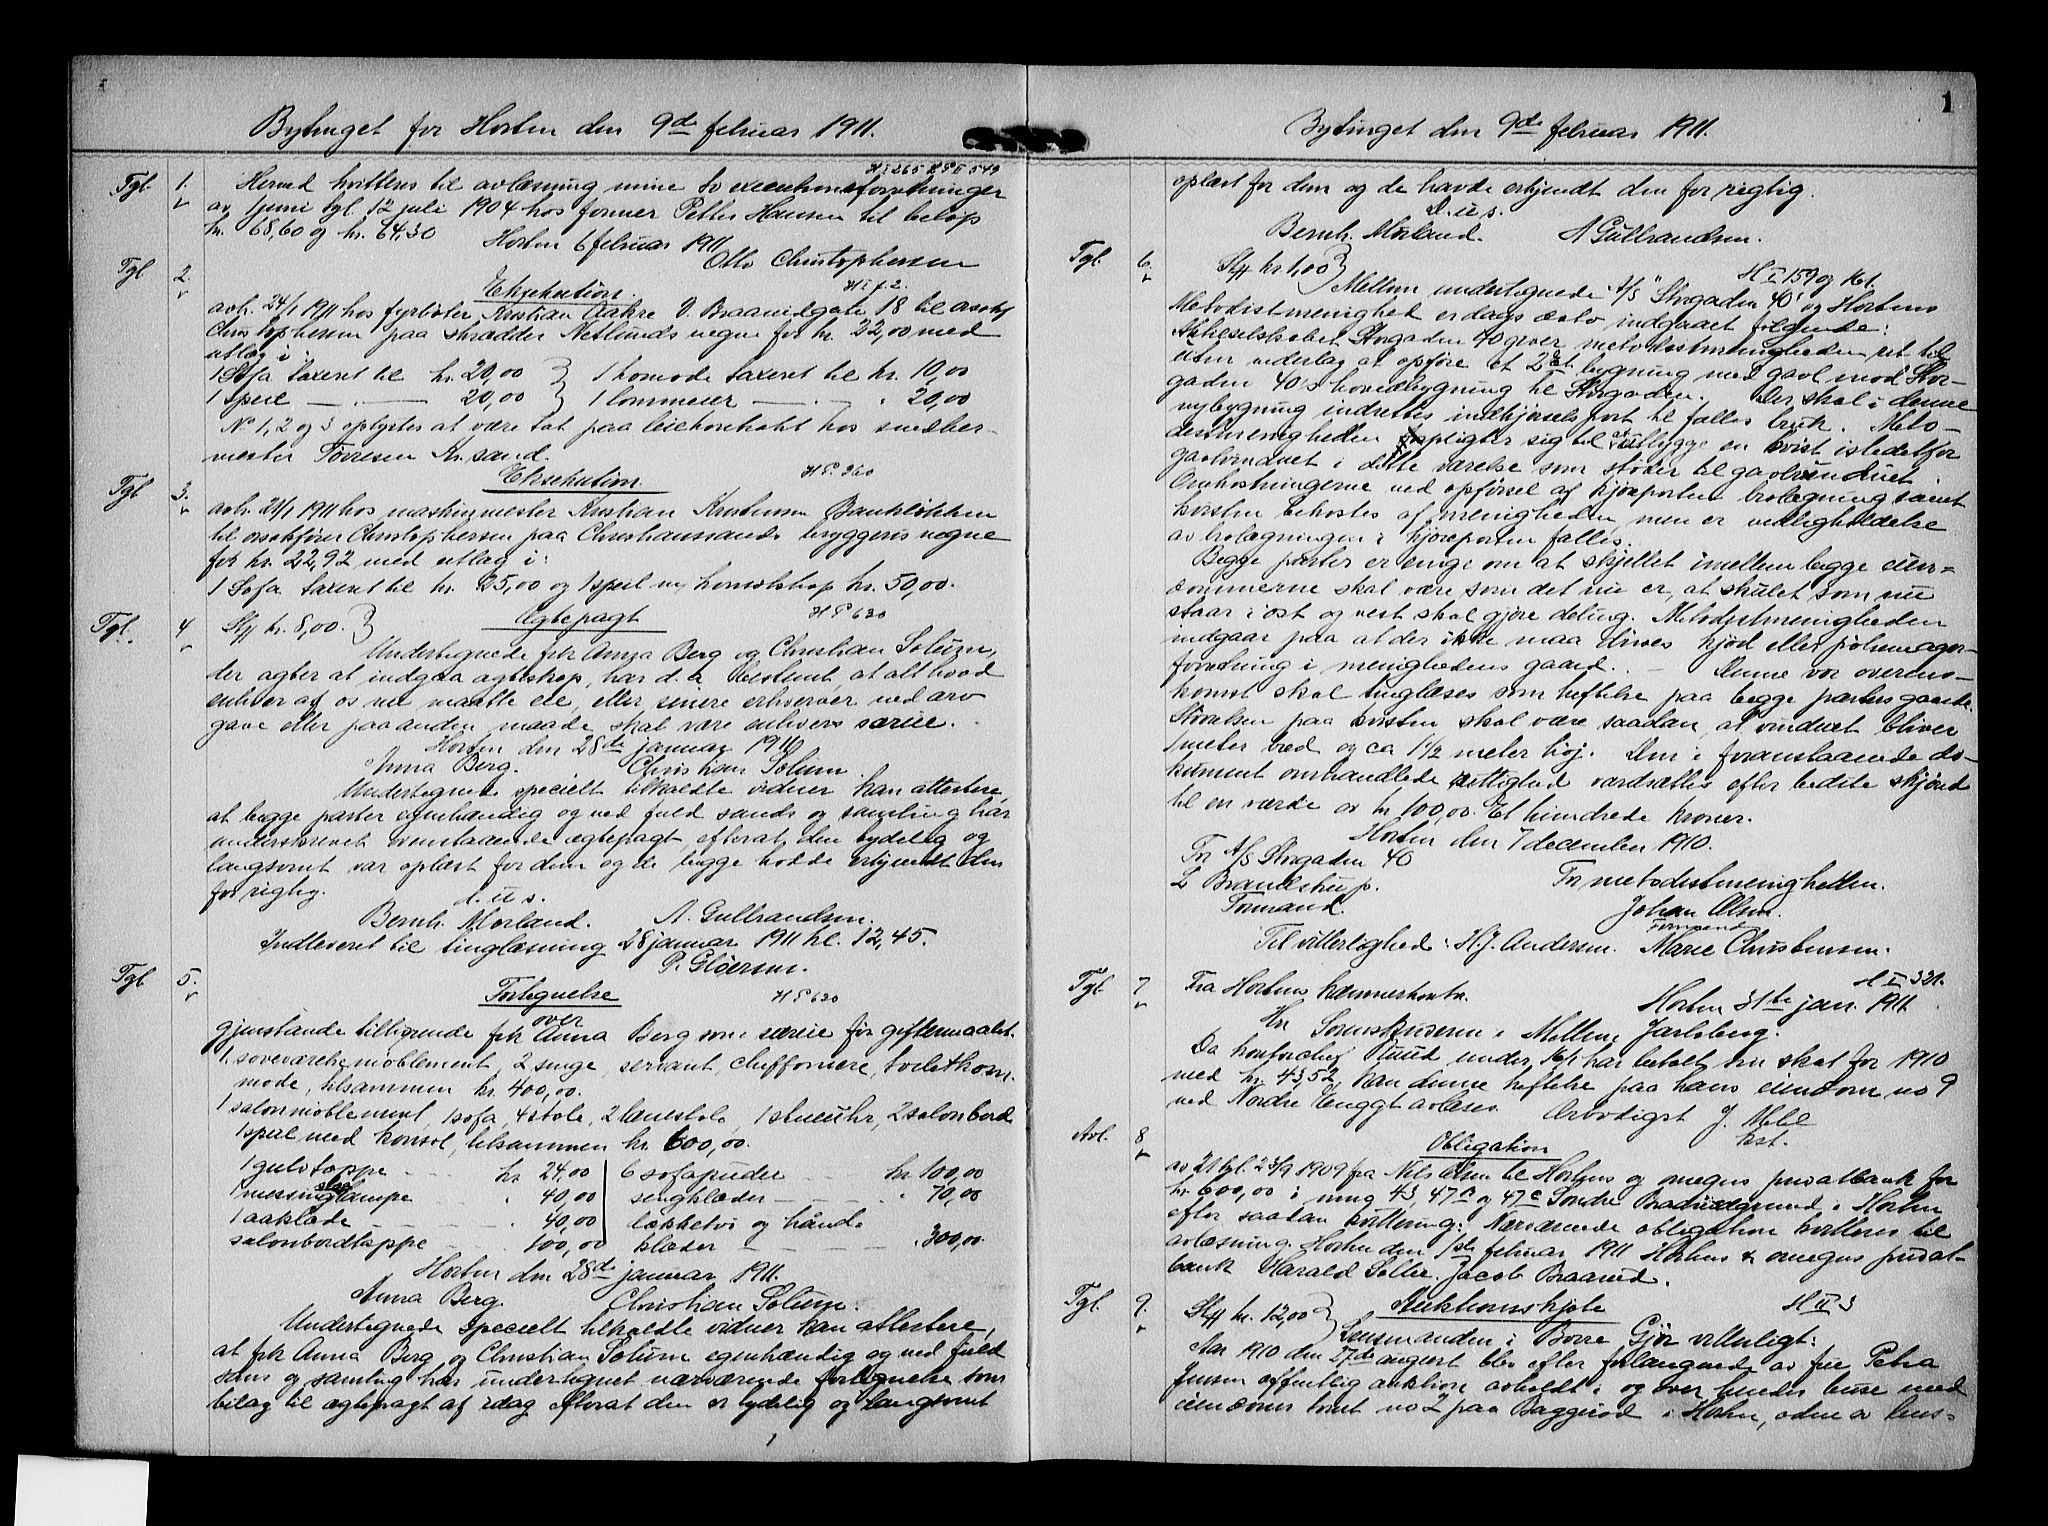 Bytinget for Horten den 9de februar 1911.
H I 265 H P II 549
Tgl. 1. Herved kvitteres til avlæsning mine to executionsforretninger
av 1 juni tgl. 12 juli 1904 hos former Petter Hansen til beløp
kr. 68,60 og kr. 64,30
Horten 6 februar 1911
Otto Christophersen
Tgl 2. Eksekution. H I f. 2.
avh. 24/1 1911 hos fyrbøter Kristian Aakre O. Braarudgate 18 til
Christophersen paa skrædder Netlunds vegne for kr. 22,00 med
utlæg i:
1 Sofa taxeret til kr. 20,00 } 1 komode taxeret til kr. 10,00
1 speil — . — 20,00 } 1 lommeur — . — " 20,00
No 1, 2 og 3 oplystes at være tat paa leiekontrakt hos snedker-
mester Torresen Kr.sand.
Tgl 3. Eksekution. H P. 360
avh. 24/1 1911 hos maskinmester Kristian Knutsen Bankløkken
til orsakfører Christophersen paa Christianssands bryggeris vegne
for kr. 22,92 med utlæg i:
1 Sofa taxeret til kr. 25,00 og 1 speil m/ konsolskap kr. 50,00.
Tgl. 4 Stg kr. 8,00. } Ægtepagt H P 630
Undertegnede frk Anna Berg og Christian Solum,
der agter at indgaa ægteskap, har d.a. bestemt, at alt hvad
enhver af os nu maatte eie, eller senere erhverver ved arv
gave eller paa anden maade skal være enhvers særeie.
Horten den 28de januar 1911
Anna Berg. Christian Solum.
Undertegnede specielt tilkaldte vidner kan attestere,
at begge parter egenhændig og ved fuld sands og samling har
underskrevet ovenstaaende ægtepagt efterat den tydelig og
langsomt var oplæst for dem og de begge hadde erkjendt den
for rigtig.
d. u. s.
Bernh. Morland. A. Gulbrandsen.
Indleveret til tinglæsning 28 januar 1911 kl. 12,45.
P. Gløersen.
Tgl 5. Fortegnelse H P 630
over
gjenstande tilhørende frk Anna Berg som særeie før giftermaalet.
1 soveværelsemøblement, 2 senge, servant, cheffoniere, toiletkom-
mode, tilsammen kr. 400,00.
1 salonmøblement, 1 sofa, 4 stole, 2 lænestole, 1 stueuhr, 2 salonbord
1 speil med konsol, tilsammen kr. 600,00.
1 gulvtæppe kr 24,00 | 6 sofapuder kr. 100,00
1 messing slag lampe " 40,00 | sengklæder " 70,00
1 aaklæde " 40,00 | dækketøi og haand-
salonbordtæppe 100,00 | klæder " 300,00.
Horten den 28de januar 1911.
Anna Berg. Christian Solum.
Undertegnede specielt tilkaldte vidner kan attestere,
at frk Anna Berg og Christian Solum egenhændig og ved fuld
sans og samling har undertegnet nærværende fortegnelse som
bilag til ægtepagt af idag efterat den er tydelig og langsomt
Bytinget den 9de februar 1911.
1
oplæst for dem og de havde erkjendt den for rigtig.
D. u. s.
Bernh. Morland. A Gulbrandsen.
Tgl. 6. Stg kr 1,00 } H I 159 og 161.
Mellem undertegnede A/S "Storgaden 40" og Hortens
Metodistmenighed er dags dato indgaaet følgende:
Aktieselskabet Storgaden 40 giver metodistmenigheden ret til
uten vederlag at opføre et 2 et bygning med gavl mod Stor-
gaden 40's hovedbygning til Storgaden. Der skal i denne
nybygning indrettes indkjørselsport til fælles bruk. Meto-
distmenigheden forpligter sig til at utbygge en kvist istedetfor
gavlvinduet i dette værelse som støter til gavlvinduet.
Omkostningerne ved opførsel af kjøreporten brolægning samt
kvisten bekostes af menigheden, men er vedligholdelse
av brolægningen i kjøreporten fælles.
Begge parter er enige om at skjellet imellem begge eien-
dommerne skal være som det nu er, at skulet som nu
staar i ost og vest skal gjøre deling. Metodistmenigheden
indgaar paa at der ikke maa drives kjød eller pølsemager-
forretning i menighedens gaard. — Denne vor overens-
komst skal tinglæses som heftelse paa begge parters gaarde.
Størrelsen paa kvisten skal være saadan, at vinduet bliver
1 meter bred og ca 1 1/2 meter høj. Den i foranstaaende do-
kument omhandlede rettighed værdsættes efter bedste skjønd
til en værdi av kr 100,00. Et hundrede kroner.
Horten den 7 december 1910.
For A/S Storgaden 40
L Brandstrup.
Formand.
For metodistmenigheden.
Johan Olsen.
Formand
Til vitterlighed: H.J. Andersen. Marie Christensen.
Tgl. 7 Fra Hortens kæmnerkontor. H II 321.
Horten 31te jan. 1911
Hr Sorenskriveren i Mellem Jarlsberg.
Da kontorchef Ruud under 16/1 har betalt sin skat for 1910
med kr. 43,52, kan denne heftelse paa hans eiendom no 9
ved Nordre Enggt avlæses. Ærbødigst J. Mebl
kst.
Avl. 8 Obligation
av 21 tgl. 23/9 1909 fra Nils Olsen til Hortens og omegns privatbank for
kr. 600,00 i mng 43, 47a og 47c Søndre Braarudgrund, i Horten
efter saadan kvittering: Nærværende obligation kvitteres til
avlæsning. Horten den 1ste februar 1911 Hortens & omegns privat-
bank Harald Solle. Jacob Braarud.
Tgl. 9. Stg kr. 12,00 } Auktionsskjøte H II 3
Lensmanden i Borre Gjør vitterligt:
Aar 1910 den 27de august blev efter forlangende av frue Petra
Jensen offentlig auktion avholdt i og over hendes huse med
eiendoms tomt no 2 paa Baggerød i Horten, idem av lens-